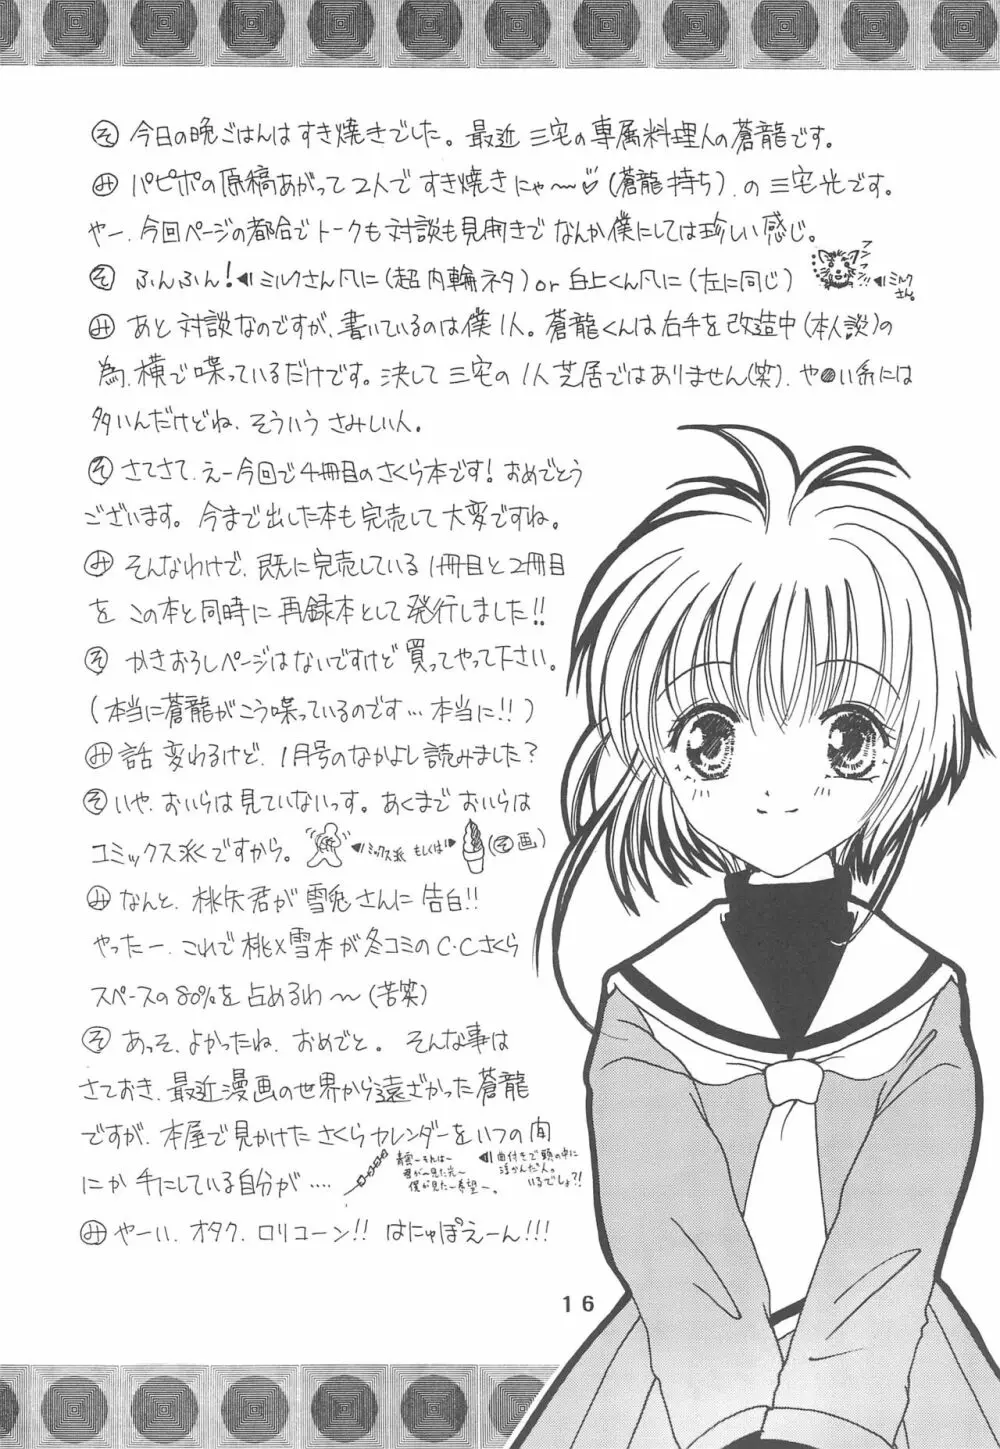 そ 今日の晩ごはんはすき焼きでした。最近 三宅の専属料理人の蒼龍です。
み パピポの原稿あがって2人で すき焼きにゃ〜♡(蒼龍持ち)、の三宅光です。
やー、今回ページの都合でトークも対談も見開きで なんか僕にしては珍しい感じ。
そ ふんふん!◀ミルクさん風に(超内輪ネタ)or 白上くん風に(左に同じ)
◀ミルクさん。
み あと対談なのですが、書いているのは僕1人。蒼龍くんは右手を改造中(本人談)の
為、横で喋っているだけです。決して三宅の1人芝居ではありません(笑)、や●い系には
多いんだけどね、そういう さみしい人。
そ さてさて、えー今回で4冊目のさくら本です!おめでとう
ございます。今まで出した本も完売して大変ですね。
み そんなわけで、既に完売している1冊目と2冊目
を この本と同時に再録本として発行しました!!
そ かきおろしページはないですけど買ってやって下さい。
(本当に蒼龍がこう喋っているのです…本当に!!)
み 話 変わるけど、1月号のなかよし読みました?
そ いや、おいらは見ていないっす。あくまでおいらは
コミックス派ですから。◀ミックス派 もしくは▶(そ画)
み なんと、桃矢君が雪兎さんに告白!!
やったー、これで桃×雪本が冬コミのC・Cさくら
スペースの80%を占めるわ〜(苦笑)
そ あっそ、よかったね、おめでと。そんな事は
さておき、最近漫画の世界から遠ざかった蒼龍
ですが、本屋で見かけた さくらカレンダーをいつの間
にか手にしている自分が‥‥
青雲〜それは〜
君が〜見た光〜
僕が見た〜希望〜。
◀曲付きで頭の中に
浮かんだ人。
いるでしょ?!
み やーい、オタク、ロリコーン!! はにゃぽえーん!!!
16